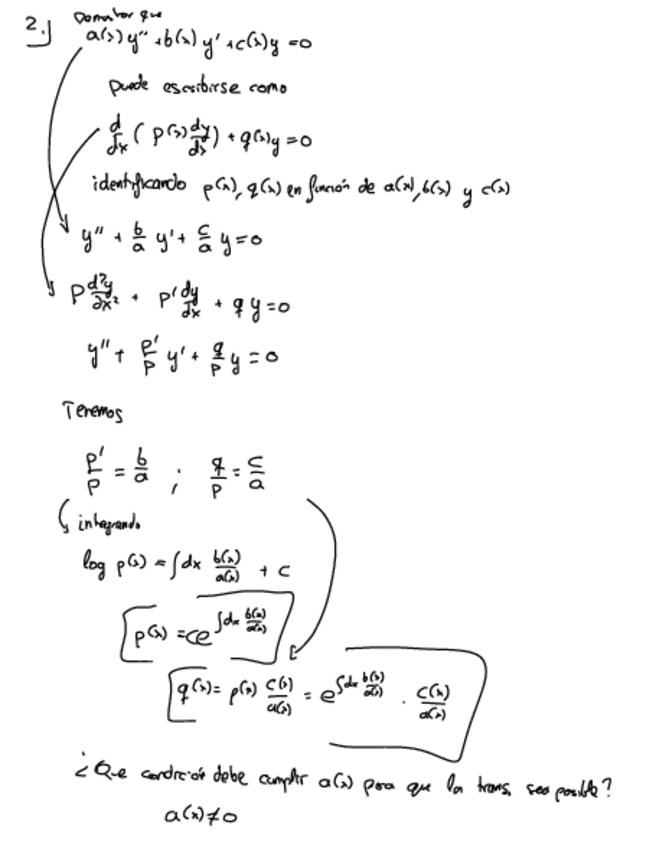 2.) Demostrar que
a(x) y'' + b(x) y' + c(x) y = 0
puede escribirse como
d/dx ( p(x) dy/dx ) + q(x) y = 0
identificando p(x), q(x) en función de a(x), b(x) y c(x)
y'' + b/a y' + c/a y = 0
p d²y/dx² + p' dy/dx + q y = 0
y'' + p'/p y' + q/p y = 0
Tenemos
p'/p = b/a ; q/p = c/a
integrando
log p(x) = ∫dx b(x)/a(x) + c
p(x) = ce^∫dx b(x)/a(x)
q(x) = p(x) c(x)/a(x) = e^∫dx b(x)/a(x) · c(x)/a(x)
¿Que condición debe cumplir a(x) para que la trans. sea posible?
a(x) ≠ 0